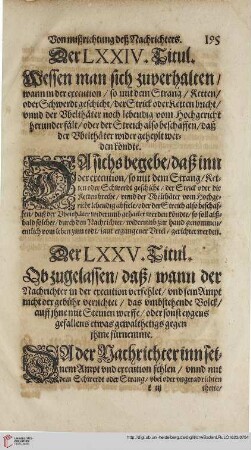 Von mißrichtung deß Nachrichters. 195
Der LXXIV. Titul.
Wessen man sich zuverhalten /
wann in der execution / so mit dem Strang / Ketten /
oder Schwerdt geschicht / der Strick oder Ketten bricht /
vnnd der Vbelthäter noch lebendig vom Hochgericht
herunder fält / oder der Streich also beschaffen / daß
der Vbelthäter wider geheylt wer-
den köndte.
Da sichs begebe / daß inn
der execution, so mit dem Strang / Ket-
ten oder Schwerdt geschicht / der Strick oder die
Ketten breche / vnnd der Vbelthäter vom Hochge-
richt lebendig
daß der Vbelthäter wider
halb solcher / durch den Nachrichter /
entlich vom leben zum todt / laut ergangener Vrtel / gerichtet werden.
Der LXXV. Titul.
Ob zugelassen / daß / wann der
Nachrichter in der execution verfehlet / vnd sein Ampt
nicht der gebühr verrichtet / das vmbstehende Volck /
auff ihne mit Steinen werffe / oder sonst eygens
gefallens etwas gewalthetigs gegen
ihme fürnemme.
DA der Nachrichter inn sei-
nem Ampt vnd execution fehlen / vnnd mit
dem Schwerdt oder Strang / vbel oder vngeradt richten
ihenne/